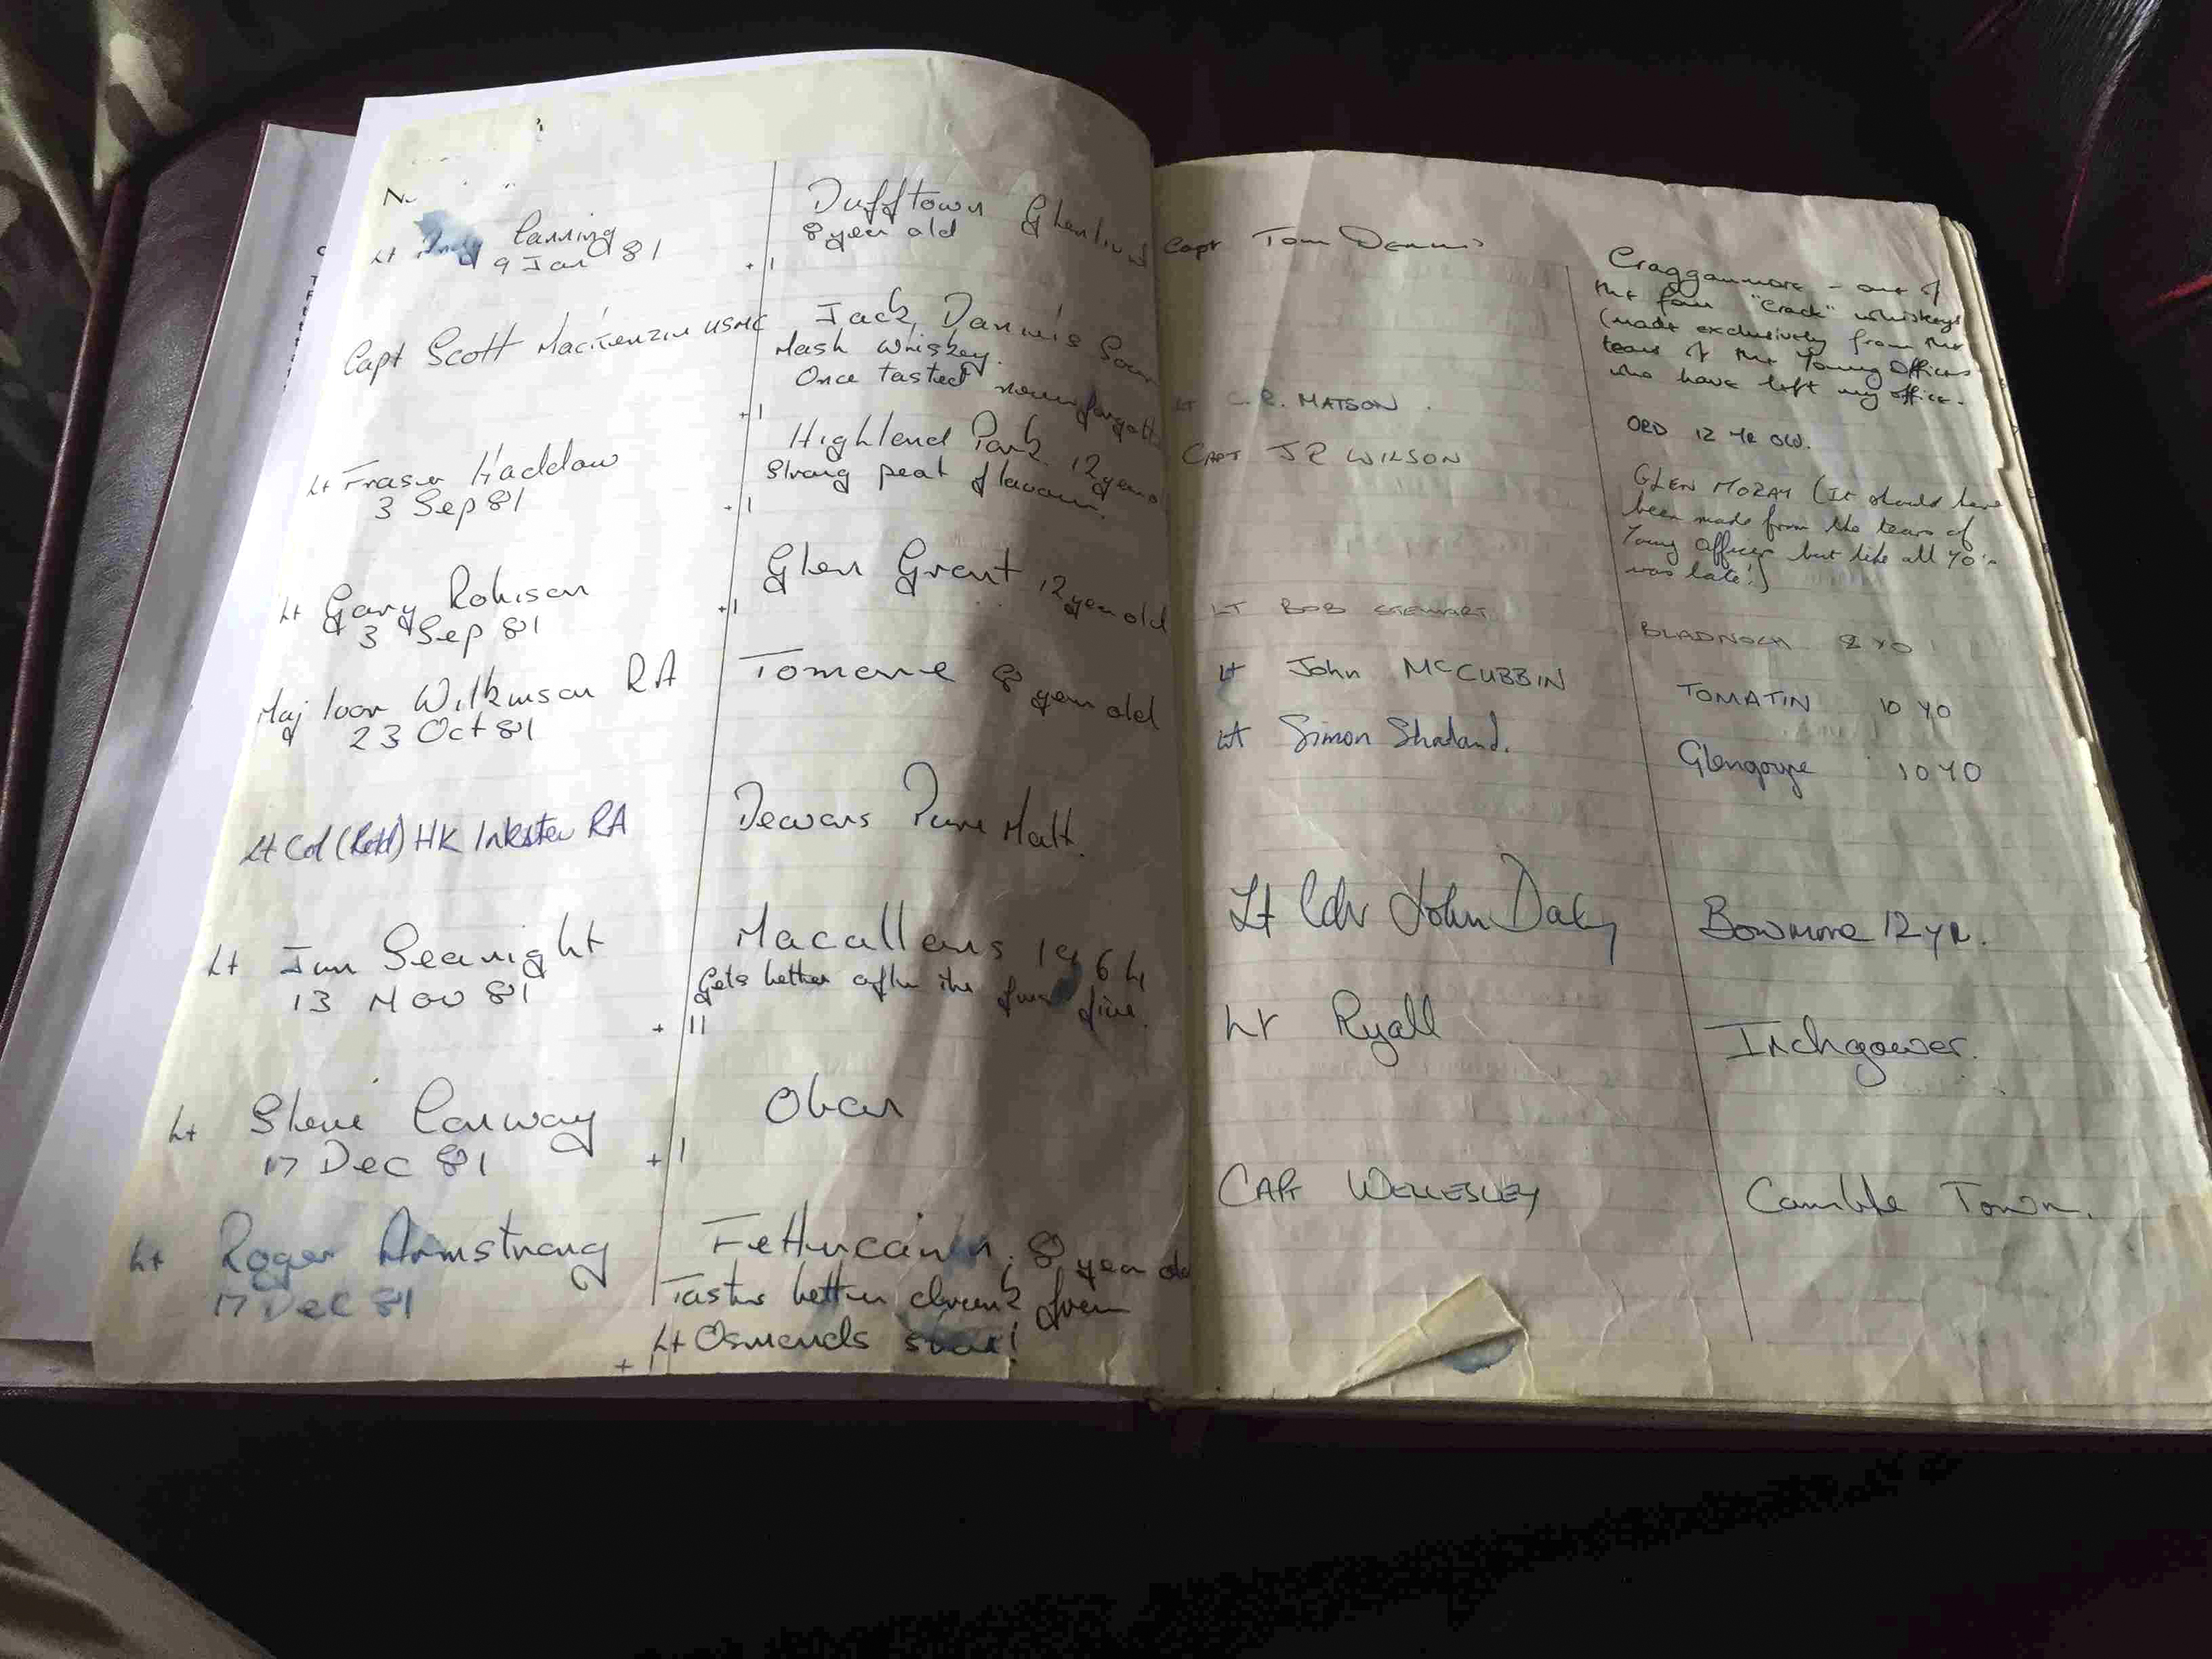 Lt Andy Canning
9 Jan 81
Dufftown Glenlivet
8 year old
+1
Capt Scott MacKenzie USMC
Jack Daniels Sour
Mash Whiskey.
Once tasted never forgott
+1
Lt Fraser Haddow
3 Sep 81
Highland Park 12 year o
Strong peat flavour.
+1
Lt Gary Robison
3 Sep 81
Glen Grant 12 year old
+1
Maj Ioan Wilkinson RA
23 Oct 81
Tomore 8 year old
Lt Col (Retd) HK Inkster RA
Dewars Pure Malt.
Lt Jim Seanight
13 Nov 81
Macallans 1964
Gets better after the first five.
+11
Lt Steve Conway
17 Dec 81
Oban
+1
Lt Roger Armstrong
17 Dec 81
Fettercairn. 8 year old
Tastes better drunk from
Lt Osmonds
+1
Capt Tom Dennis
Cragganmore - one of
the four "Crack" whiskeys
(made exclusively from the
tears of the Young Officers
who have left my office.
LT C.R. MATSON.
ORD 12 YR OLD.
CAPT JR WILSON
GLEN MORAY (It should have
been made from the tears of
Young Officers but like all YO's
was late!)
LT BOB STEWART
BLADNOCH 8 YO
Lt John McCUBBIN
TOMATIN 10 YO
Lt Simon Shadand.
Glengoyne 10 YO
Lt Cdr John Daly
Bowmore 12 yr.
Lt Ryall
Inchgower.
CAPT WELLESLEY
Camble Town.